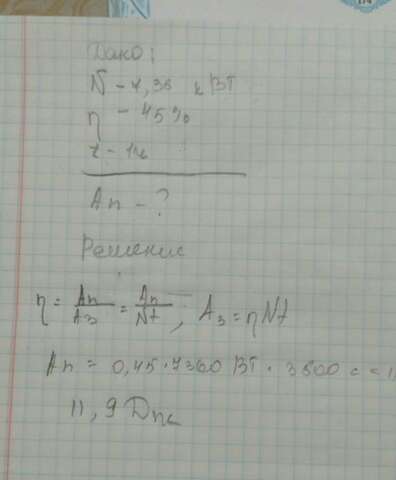 Дано:
N - 7,36 кВТ
η - 45%
t - 1ч
Aп - ?
Решение
η = Aп/Aз = Aп/Nt, Aз = ηNt
Aп = 0,45 · 7360 ВТ · 3600 с =
11,9 Дж